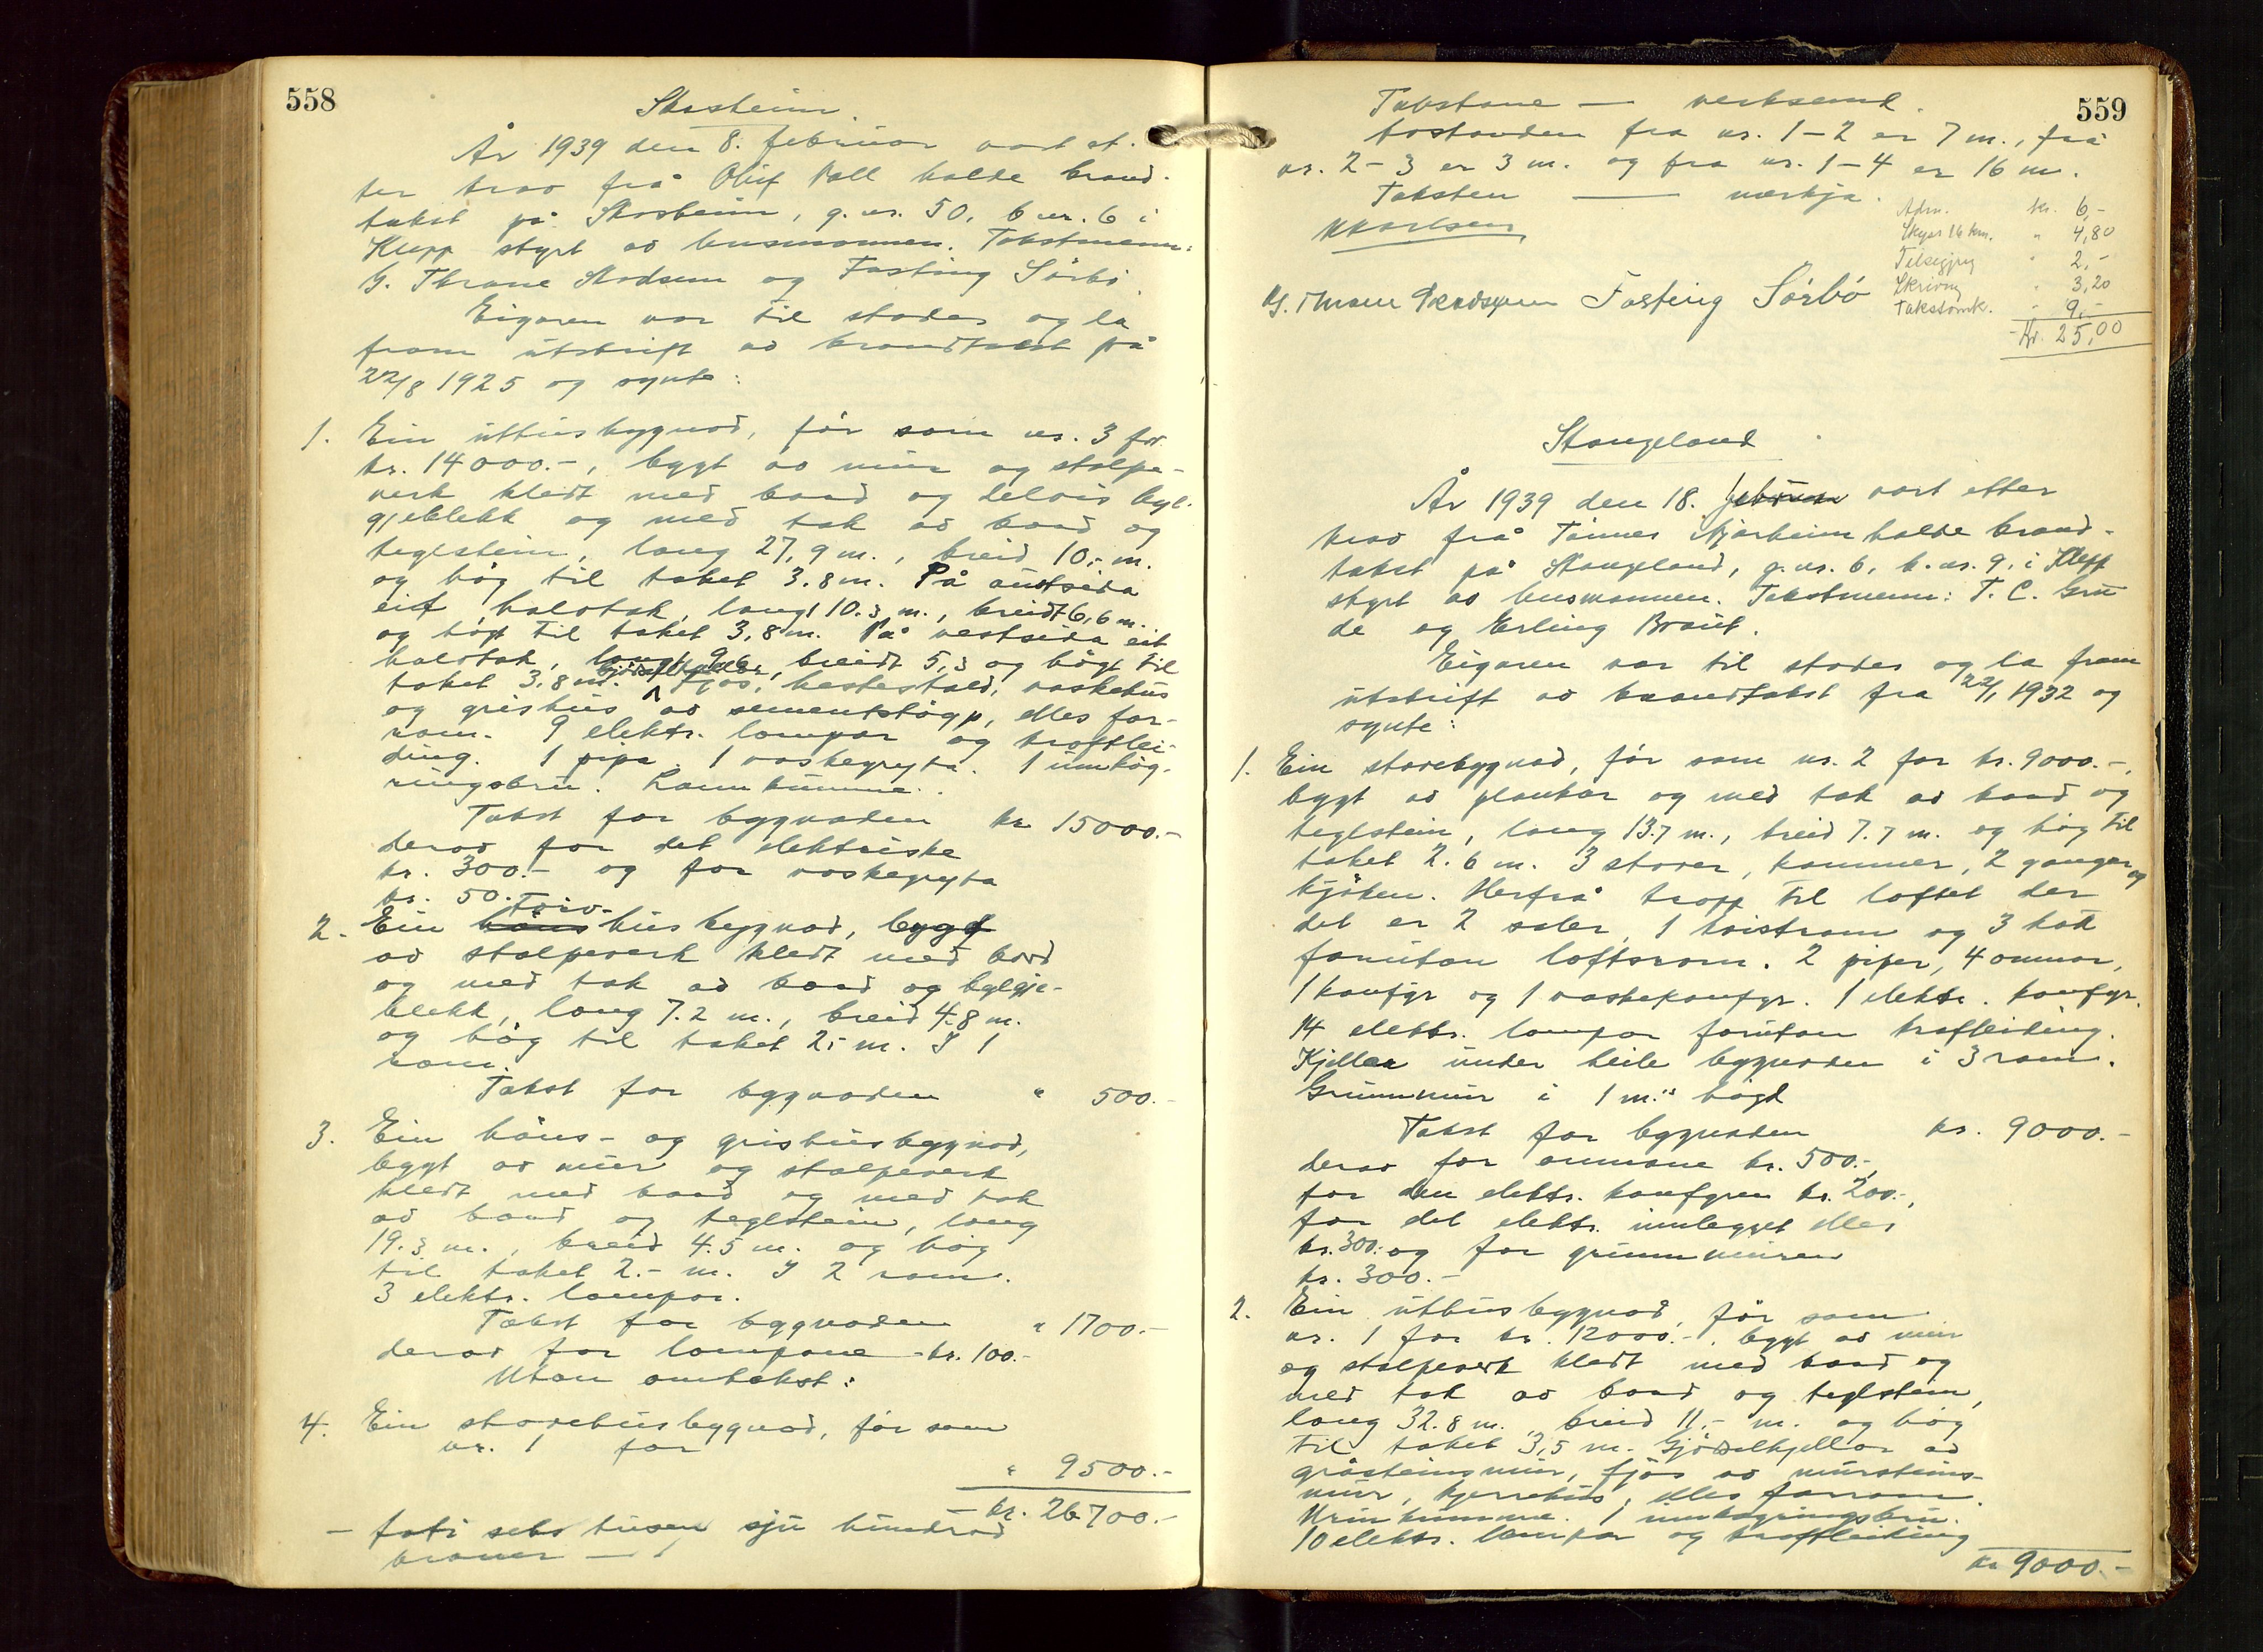 558
Skasheim
År 1939 den 8. februar vart et-
ter krav frå Oluf Voll halde brand-
takst på Skasheim, g. nr. 50, b nr. 6 i
Klepp styrt av lensmannen. Takstmenn:
G. Thrane Skadsem og Fasting Sörbö.
Eigaren var til stades og la
fram utskrift av brandtakst på
22/8 1925 og synte:
1. Ein uthusbygnad, för som nr. 3 for
kr. 14000.-, bygt av mur og stolpe-
verk kledt med bord og delvis byl-
gjeblekk og med tak av bord og
teglstein, lang 27,9 m., breid 10,- m.
og hög til taket 3.8 m. På austsida
eit halvtak, langt 10.3 m., breidt 6,6 m.
og högt til taket 3,8 m. På vestsida eit
halvtak, langt 9,6, breidt 5,3 og högt til
taket 3,8 m. Gjödselkjellar, Fjos, hestestall, vaskehus
og grishus av sementstöyp, elles for-
rom. 9 elektr. lampar og kraftlei-
ding. 1 pipa. 1 vaskegryta. 1 innkög-
ringsbru. Landkumme.
Takst for bygnaden kr 15000.-
derav for det elektriske
kr. 300.- og for vaskegryta
kr. 50.-
2. Ein höns Torv- husbygnad, bygd
av stolpeverk kledt med bord
og med tak av bord og bylgje-
blekk, lang 7.2 m., breid 4.8 m.
og hög til taket 2,- m. I 1
rom.
Takst for bygnaden " 500.-
3. Ein höns- og grishusbygnad,
bygt av mur og stolpeverk
kledt med bord og med tak
av bord og teglstein, lang
19.3 m., breid 4.5 m. og hög
til taket 2.- m. I 2 rom.
3 elektr. lampar.
Takst for bygnaden " 1700.-
derav for lampane kr. 100.-
Utan omtakst:
4. Ein stovehusbygnad, för som
nr. 1 for " 9500.-
- kr. 26700.-
- tjuge seks tusen sju hundrad
kroner -
559
Takstane — verksemd.
Avstanden fra nr. 1-2 er 7 m., frå
nr. 2-3 er 3 m. og fra nr. 1-4 er 16 m.
Taksten — nærkja.
KKarlsen
G. Thrane Skadsem Fasting Sörbö
Adm. kr. 6,-
Skyss 16 km. " 4,80
Tilsegjing " 2,-
Skriving " 3,20
Takstomk. " 9,-
Kr. 25,00
Stangeland
År 1939 den 18. februar vart etter
krav frå Tönnes Njærheim halde brand-
takst på Stangeland, g. nr. 6, b. nr. 9. i Klepp
styrt av lensmannen. Takstmenn: T. C. Gru
de og Erling Braut.
Eigaren var til stades og la fram
utskrift av brandtakst fra 22/1 1932 og
synte:
1. Ein stovebygnad, för som nr. 2 for kr. 9000.-,
bygt av plankar og med tak av bord og
teglstein, lang 13.7 m., breid 7.7 m. og hög til
taket 2.6 m. 3 stover, kammer, 2 ganger og
kjöken. Herfrå tropp til loftet der
det er 2 saler, 1 kvistrom og 3 kott
foruton loftsrom. 2 piper, 4 omnar,
1 komfyr og 1 vaskekomfyr. 1 elektr. komfyr.
14 elektr. lampar foruton kraftleiding.
Kjellar under heile bygnaden i 3 rom.
Grunnmur i 1 m.s högd
Takst for bygnaden kr. 9000.-
derav for omnane kr. 500.-,
for den elektr. komfyren kr. 200.-,
for det elektr. innlegget elles
kr. 300.- og for grunnmuren
kr. 300.-
2. Ein uthusbygnad, för som
nr. 1 for kr. 12000.-, bygt av mur
og stolpeverk kledt med bord og
med tak av bord og teglstein,
lang 32.8 m., breid 11,- m. og hög
til taket 3,5 m. Gjödselkjellar av
gråsteinsmur, fjos av mursteins-
mur, kjerrehus, elles forrom.
Urinkumme. 1 innkögringsbru.
10 elektr. lampar og kraftleiding
kr 9000.-